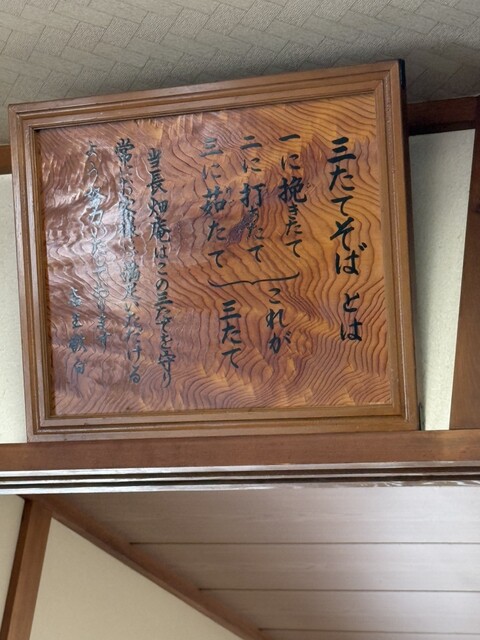 三たてそば とは
一に挽きたて
二に打ちたて
三に茹たて
これが
三たて
当長畑庵はこの三たてを守り
常にお客様に満足いただける
よう努力いたしております